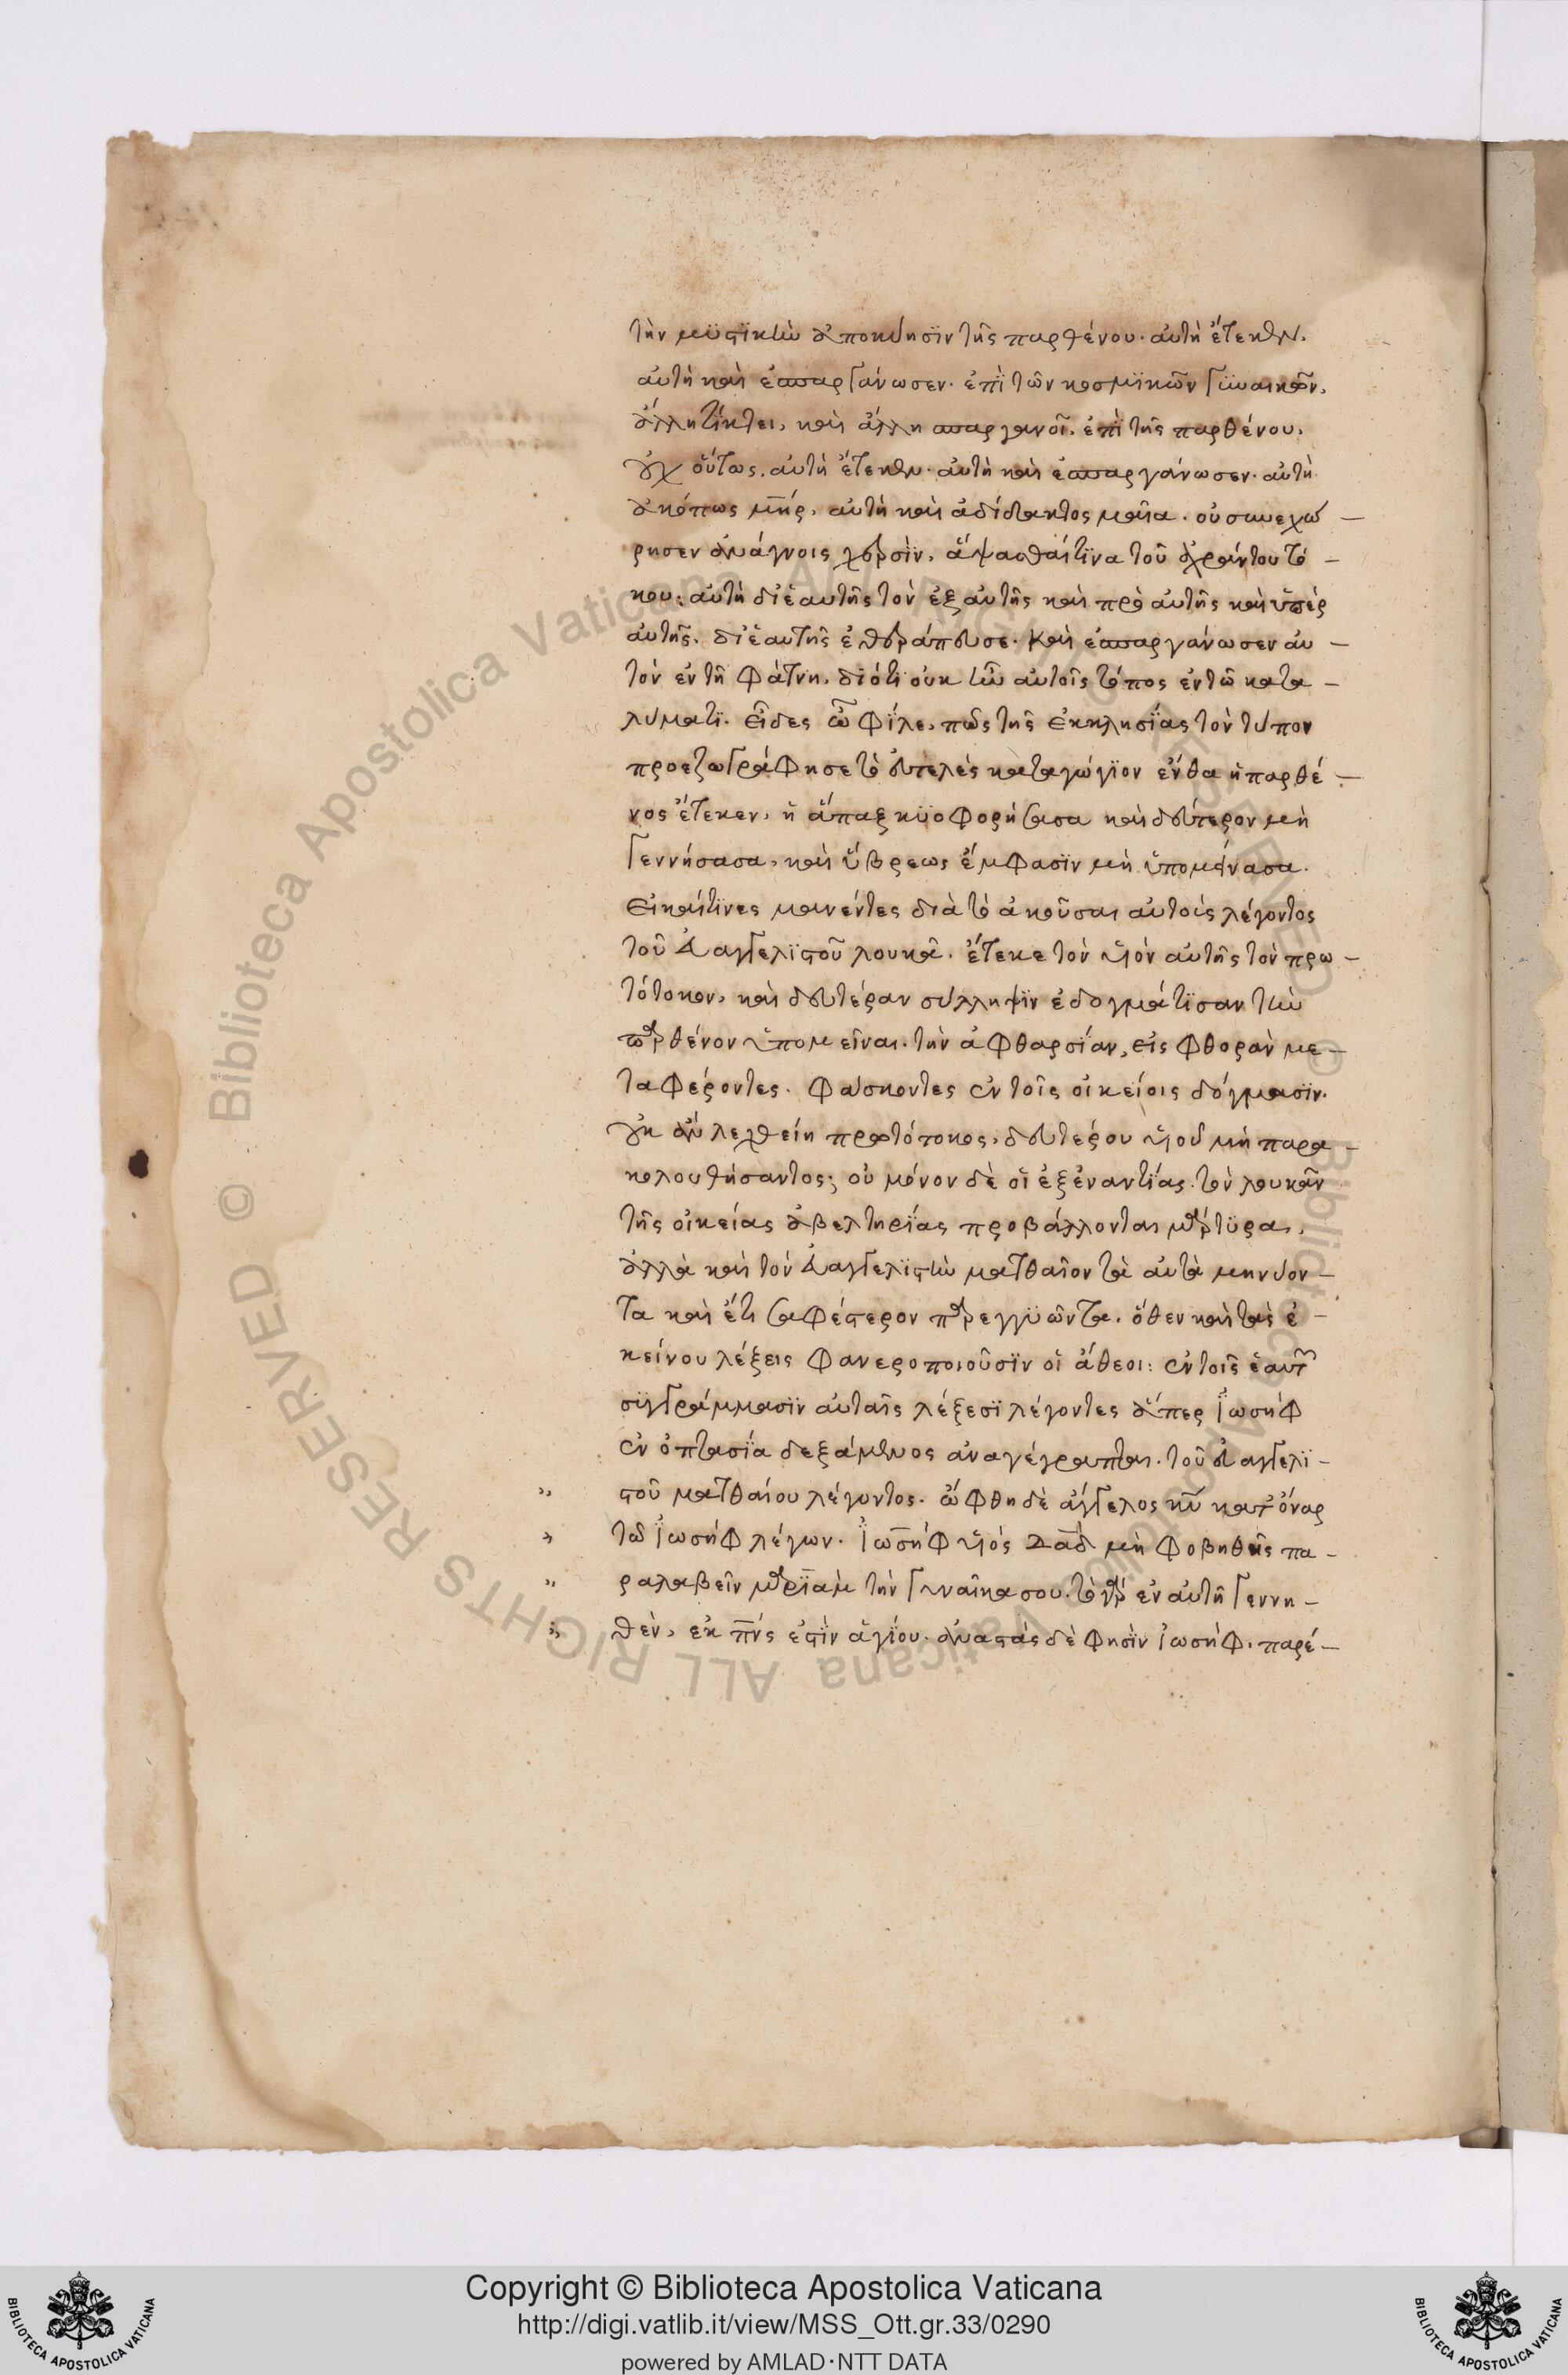 τὴν μϋστϊκὴν ἀποκύησϊν τῆς παρθένου· αὐτὴ ἔτεκεν.
αὐτὴ καὶ ἐσπαργάνωσεν· ἐπῒ τῶν κοσμϊκῶν γϋναικῶν,
ἄλλη τίκτει, καὶ ἄλλη σπαργανοῖ. ἐπὶ τῆς παρθένου,
οὐχ οὕτως. αὐτὴ ἔτεκεν· αὐτὴ καὶ ἐσπαργάνωσεν· αὐτὴ
ἀκόπως μη̅ρ, αὐτὴ καὶ ἀδίδακτος μαῖα. οὐ συνεχώ –
ρησεν ἀνάγνοις χερσὶν, ἅψασθαί τϊνα τοῦ ἀχράντου τό –
κου: αὐτὴ δι' ἑαυτῆς τὸν ἐξ αὐτῆς καὶ πρὸ αὐτῆς καὶ ὑπὲρ
αὐτῆς, δι' ἑαυτῆς ἐθεράπευσε. καὶ ἐσπαργάνωσεν αὐ –
τὸν ἐν τῆ φάτνη, διότι οὐκ ἦν αὐτοῖς τόπος ἐν τῶ κατα –
λύματϊ. εἶδες ὦ φίλε, πῶς τῆς ἐκκλησίας τὸν τύπον
προεζωγράφησε τὸ εὐτελὲς καταγώγϊον ἔνθα ἡ παρθέ –
νος ἔτεκεν, ἡ ἅπαξ κϋοφορήσασα καὶ δεύτερον μὴ
γεννήσασα, καὶ ὕβρεως ἔμφασϊν μὴ ὑπομείνασα.
Εἰ καί τϊνες μανέντες διὰ τὸ ἀκοῦσαι αὐτοὺς λέγοντος
τοῦ εὐαγγελϊστοῦ λουκᾶ. ἔτεκε τὸν υἱὸν αὐτῆς τὸν πρω –
τότοκον, καὶ δευτέραν σύλληψϊν ἐδογμάτϊσαν τὴν
παρθένον ὑπομεῖναι. τὴν ἀφθαρσίαν, εἰς φθορὰν με –
ταφέροντες. φάσκοντες ἐν τοῖς οἰκείοις δόγμασϊν.
οὐκ ἂν λεχθείη πρωτότοκος, δευτέρου υἱοῦ μὴ παρα –
κολουθήσαντος; οὐ μόνον δὲ οἱ ἐξεναντίας. τὸν λουκᾶν
τῆς οἰκείας ἀβελτηρίας προβάλλονται μάρτϋρα,
ἀλλὰ καὶ τὸν εὐαγγελϊστὴν ματθαῖον τὰ αὐτὰ μηνύον –
τα καὶ ἔτι σαφέστερον παρεγγϋῶντα. ὅθεν καὶ τὰς ἐ –
κείνου λέξεις φανεροποιοῦσϊν οἱ ἄθεοι: ἐν τοῖς ἑαυτ
σϋγγράμμασϊν αὐταῖς λέξεσϊ λέγοντες ἅπερ Ἰωσὴφ
ἐν ὀπτασία δεξάμενος ἀναγέγραπται. τοῦ εὐαγγελϊ –
» στοῦ ματθαίου λέγοντος. ὤφθη δὲ ἄγγελος κυ̅ κατ' ὄναρ
» τῶ Ἰωσὴφ λέγων. Ἰωσὴφ υἱὸς Δα̅δ μὴ φοβηθῆς πα –
» ραλαβεῖν μαρϊὰμ τὴν γυναῖκα σου. τὸ γὰρ ἐν αὐτῆ γεννη –
» θὲν, ἐκ πν̅ς ἐστϊν ἁγίου. ἀναστὰς δὲ φησϊν Ἰωσὴφ, παρέ –
Copyright © Biblioteca Apostolica Vaticana
http://digi.vatlib.it/view/MSS_Ott.gr.33/0290
powered by AMLAD·NTT DATA